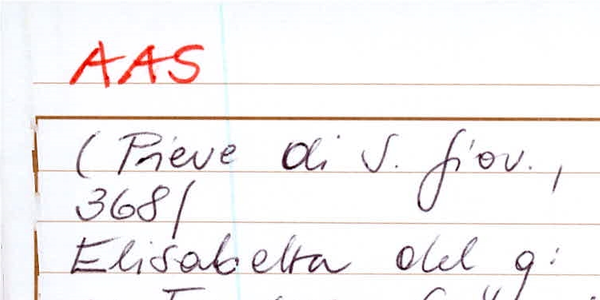 AAS
(Pieve di S. Giov.,
368/
Elisabetta del q: